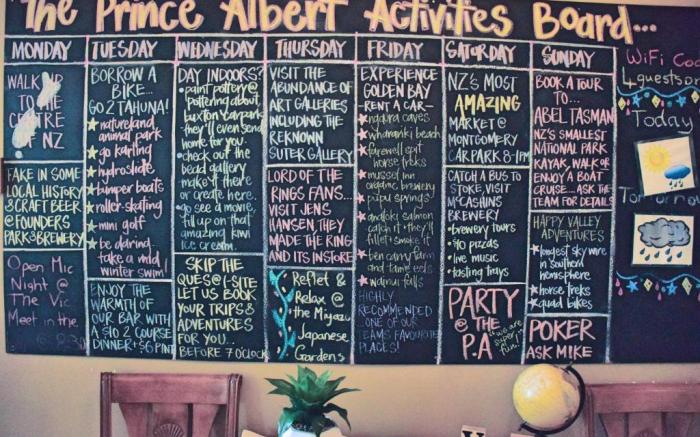 The Prince Albert Activities Board...
MONDAY
WALK UP
TO THE
CENTRE
OF NZ
FAKE IN SOME
LOCAL HISTORY
& CRAFT BEER
@ FOUNDERS
PARK & BREWERY
Open Mic
Night @
The Vic
Meet in the
TUESDAY
BORROW A
BIKE...
GO 2 TAHUNA!
natureland
animal park
go karting
hydroslide
bumper boats
roller-skating
mini golf
be daring...
take a mid
winter swim!
ENJOY THE
WARMTH OF
OUR BAR WITH
A $10 2 COURSE
DINNER + $6 PINT
WEDNESDAY
DAY INDOORS?
paint pottery @
pottering about,
they'll even send
home for you.
check out the
bead gallery
make it there
or create here.
go see a movie,
fill up on that
amazing kiwi
ice cream.
SKIP THE
QUES @ I-SITE
LET US BOOK
YOUR TRIPS &
ADVENTURES
FOR YOU...
BEFORE 7 O'CLOCK
THURSDAY
VISIT THE
ABUNDANCE OF
ART GALLERIES
INCLUDING THE
REKNOWN
SUTER GALLERY
LORD OF THE
RINGS FANS...
VISIT JENS
HANSEN, THEY
MADE THE RING
AND ITS INSTORE
Reflet &
Relax @
the Miyazu
Japanese
Gardens
FRIDAY
EXPERIENCE
GOLDEN BAY
RENT A CAR—
ngarua caves
wharariki beach
farewell spit
horse treks
mussel inn
organic brewery
pupu springs
anatoki salmon
catch it & they'll
fillet & smoke it
and tame eels
HIGHLY
RECOMMENDED
...ONE OF OUR
TEAMS FAVOURITE
PLACES!
SATURDAY
NZ'S MOST
AMAZING
MARKET @
MONTGOMERY
CARPARK 8-1PM
CATCH A BUS TO
STOKE, VISIT
McCASHINS
BREWERY
brewery tours
$10 pizzas
live music
tasting trays
PARTY
@ THE
P.A
"we are
super
fun!"
SUNDAY
BOOK A TOUR
TO...
ABEL TASMAN
NZ'S SMALLEST
NATIONAL PARK
KAYAK, WALK OR
ENJOY A BOAT
CRUISE... ASK THE
TEAM FOR DETAILS
HAPPY VALLEY
ADVENTURES
longest sky wire
in southern
hemisphere
horse treks
quad bikes
POKER
ASK MIKE
WiFi Cod
4guestspa
Today
Tomorrow